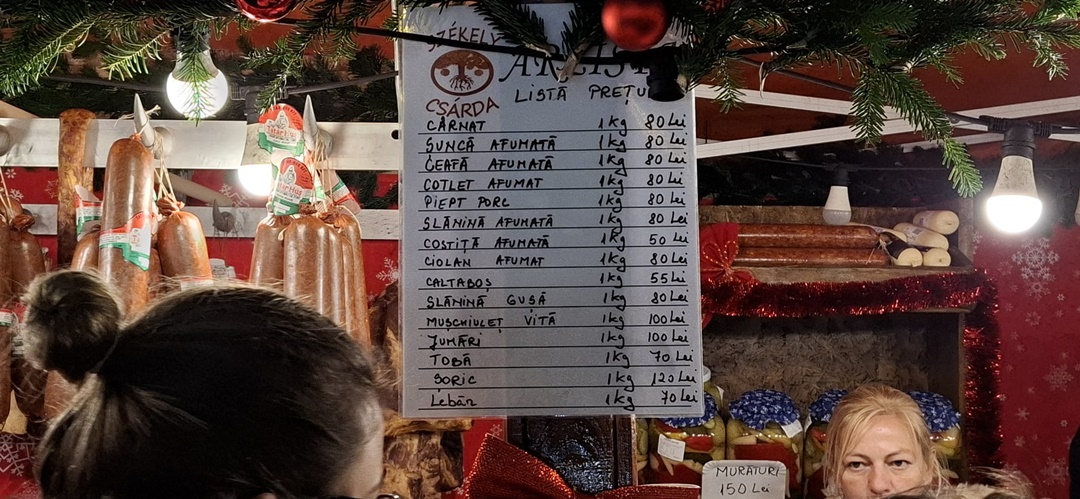 SZÉKELY
CSÁRDA
LISTĂ PREȚU
CÂRNAT 1kg 80 Lei
ȘUNCĂ AFUMATĂ 1kg 80 Lei
CEAFĂ AFUMATĂ 1kg 80 Lei
COTLET AFUMAT 1kg 80 Lei
PIEPT PORC 1kg 80 Lei
SLĂNINĂ AFUMATĂ 1kg 80 Lei
COSTIȚĂ AFUMATĂ 1kg 50 Lei
CIOLAN AFUMAT 1kg 80 Lei
CALTABOȘ 1kg 55 Li
SLĂNINĂ GUȘĂ 1kg 80 Lei
MUȘCHIULEȚ VITĂ 1kg 100 Lei
JUMĂRI 1kg 100 Lei
TOBĂ 1kg 70 Lei
ȘORIC 1kg 120 Lei
Lebăr 1kg 70 Lei
MURATURI
150 Lei